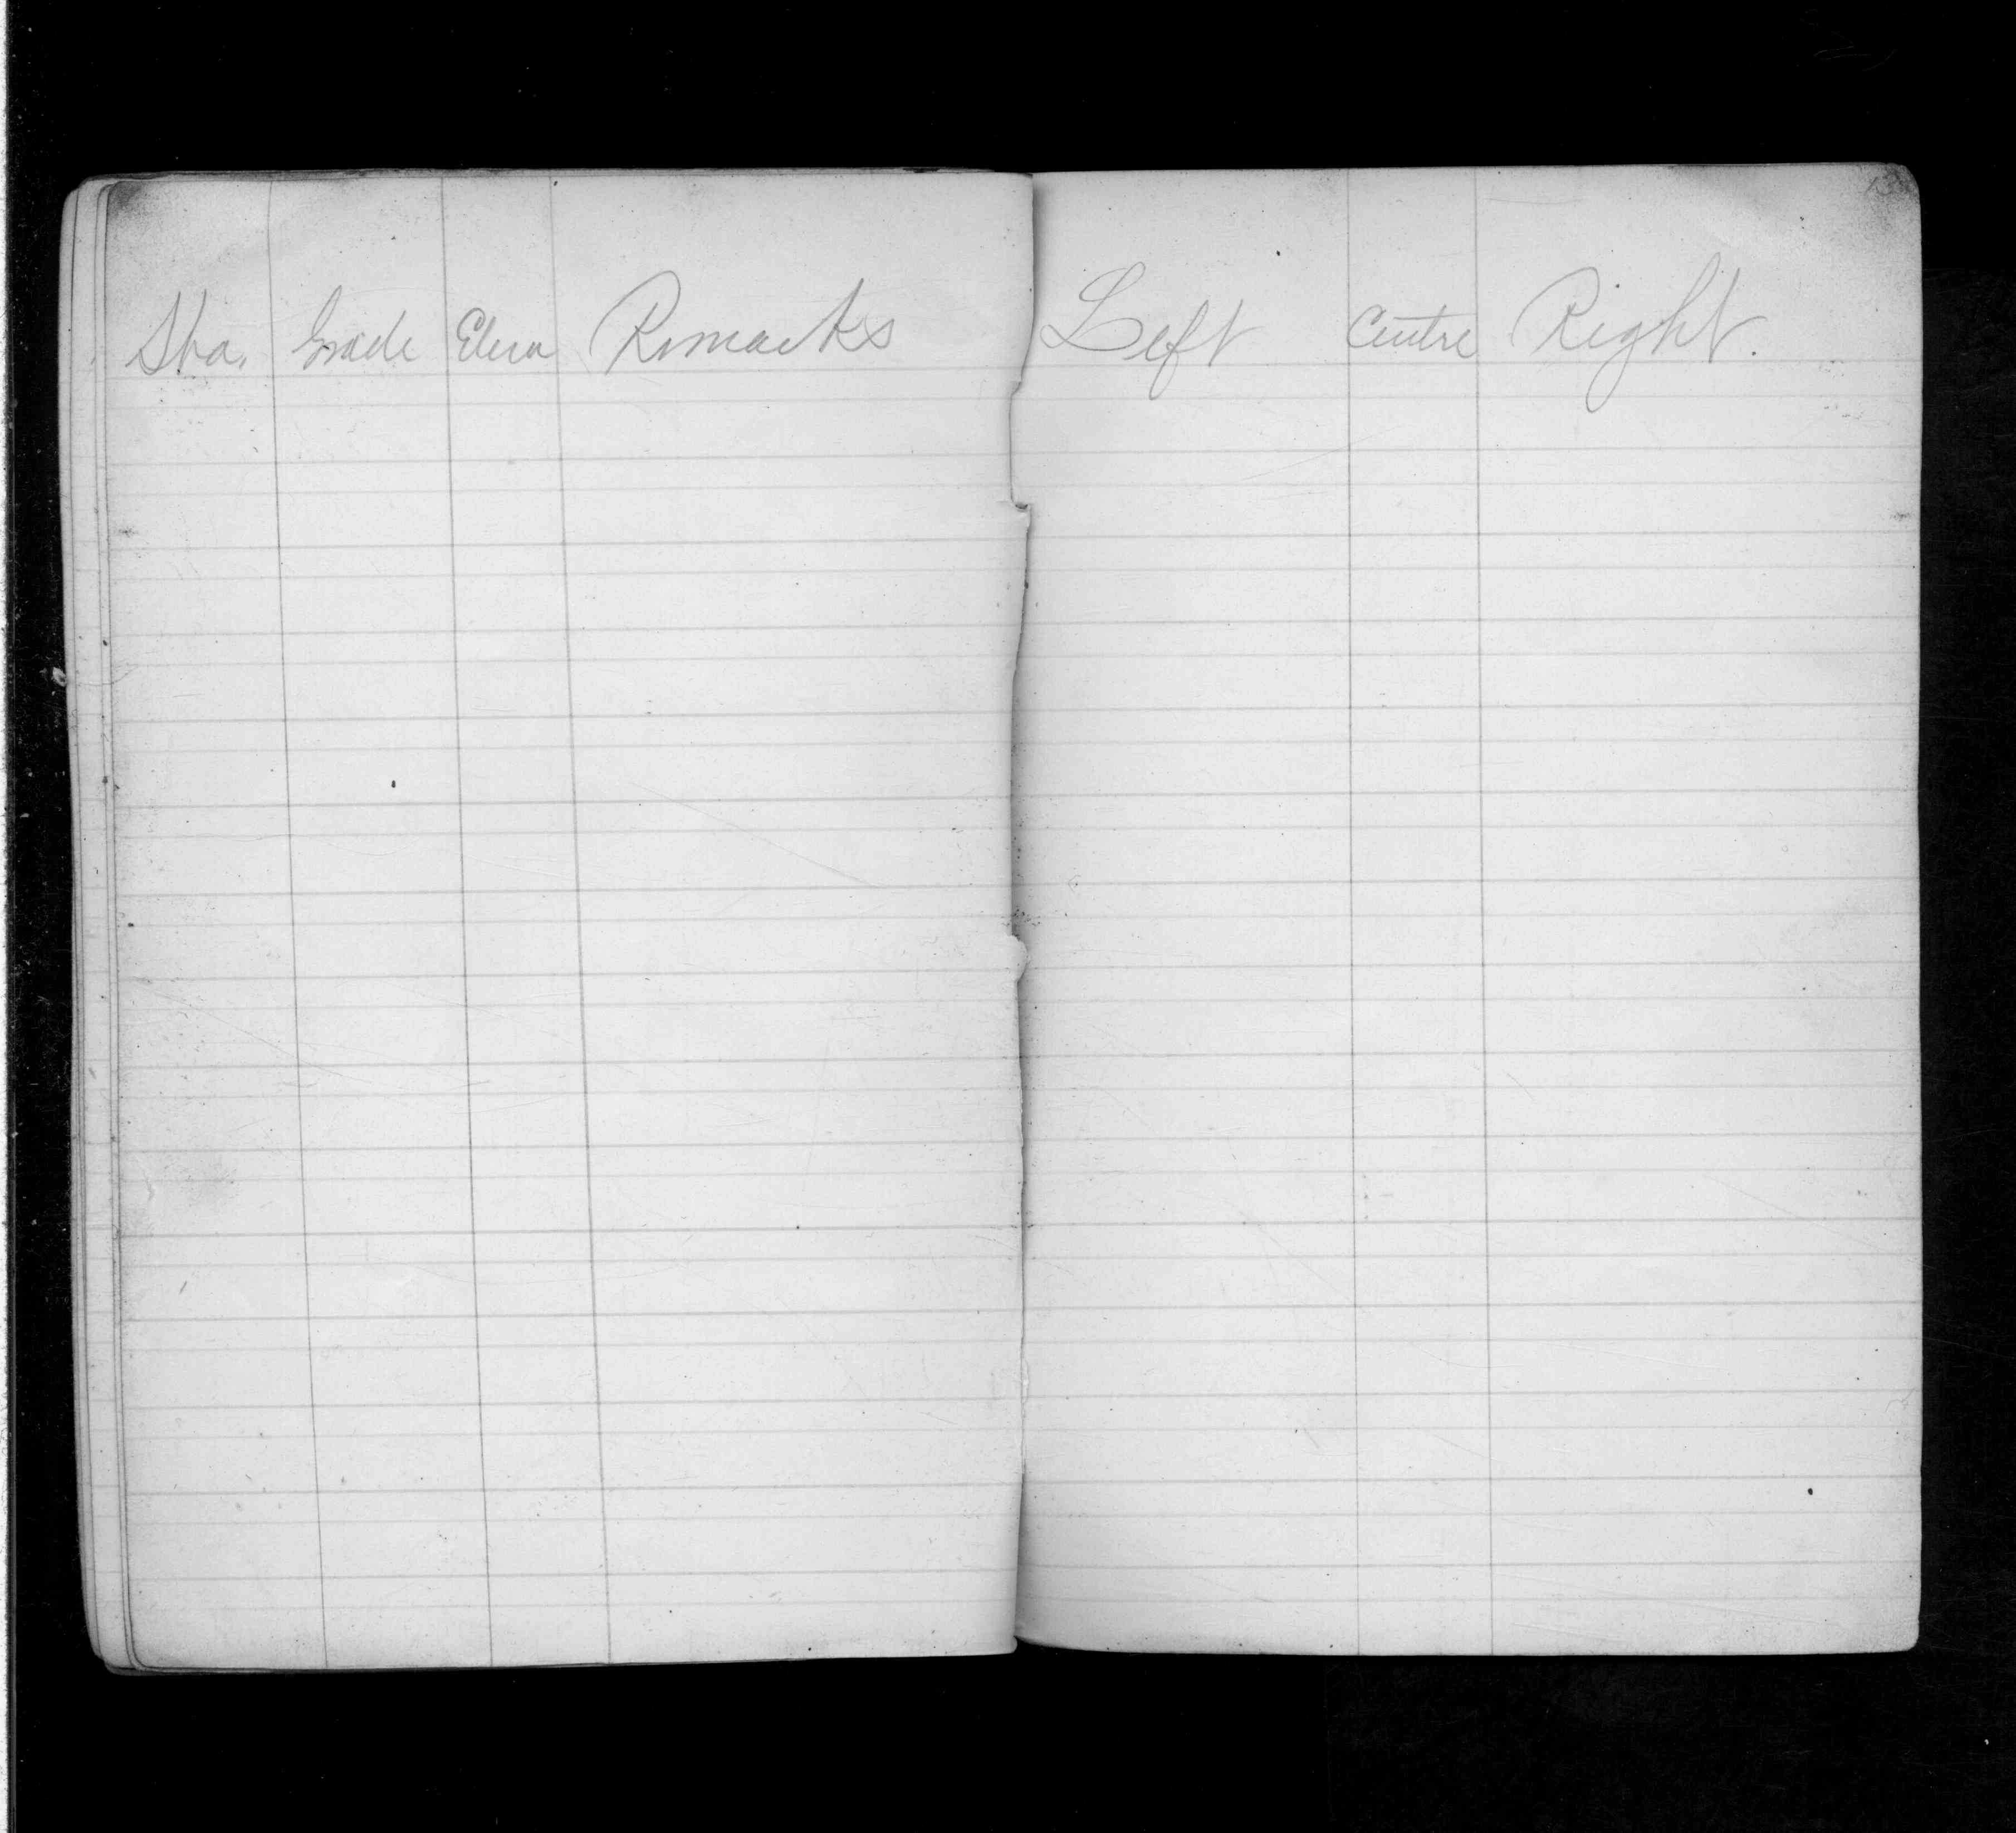 Sta. Grade Elev Remarks
Left Centre Right.